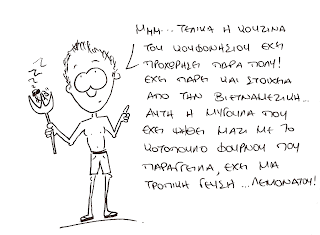 ΜΜΜ... ΤΕΛΙΚΑ Η ΚΟΥΖΙΝΑ
ΤΟΥ ΚΟΥΦΟΝΗΣΙΟΥ ΕΧΕΙ
ΠΡΟΧΩΡΗΣΕΙ ΠΑΡΑ ΠΟΛΥ!
ΕΧΕΙ ΠΑΡΕΙ ΚΑΙ ΣΤΟΙΧΕΙΑ
ΑΠΟ ΤΗΝ ΒΙΕΤΝΑΜΕΖΙΚΗ...
ΑΥΤΗ Η ΜΥΓΟΥΛΑ ΠΟΥ
ΕΧΕΙ ΨΗΘΕΙ ΜΑΖΙ ΜΕ ΤΟ
ΚΟΤΟΠΟΥΛΟ ΦΟΥΡΝΟΥ ΠΟΥ
ΠΑΡΑΓΓΕΙΛΑ, ΕΧΕΙ ΜΙΑ
ΤΡΟΠΙΚΗ ΓΕΥΣΗ... ΛΕΜΟΝΑΤΟΥ!